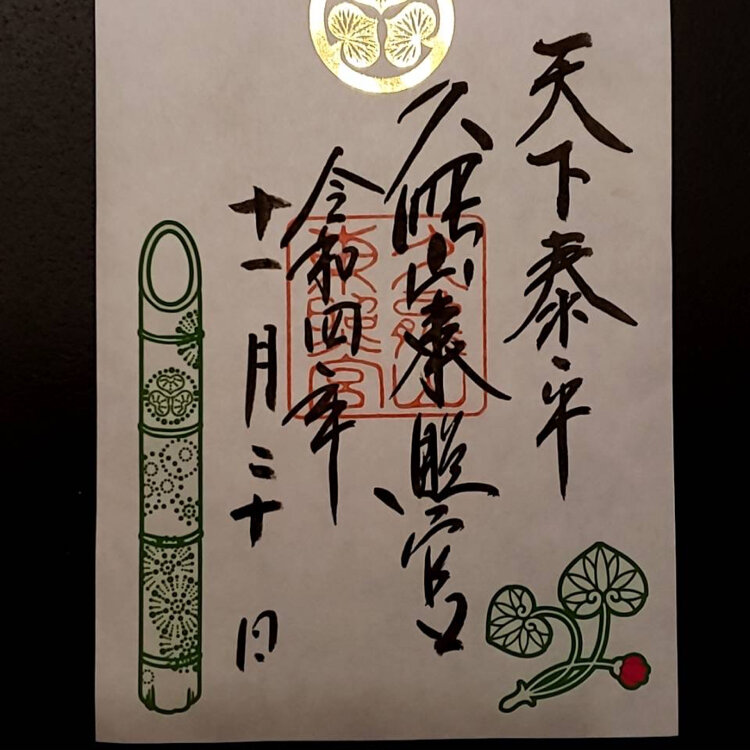 天下泰平
久能山東照宮
令和四年
十一月二十日
久能山
東照宮